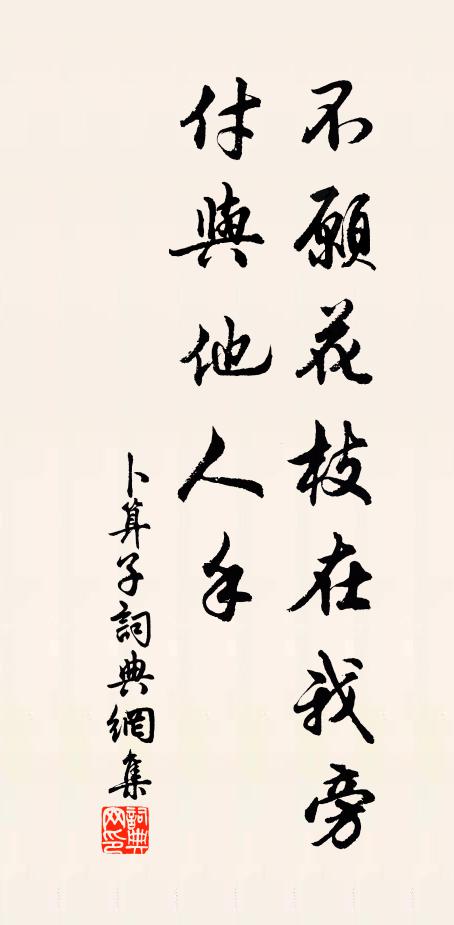 不願花枝在我旁
付與他人手
卜算子詞典網集
詞典网印